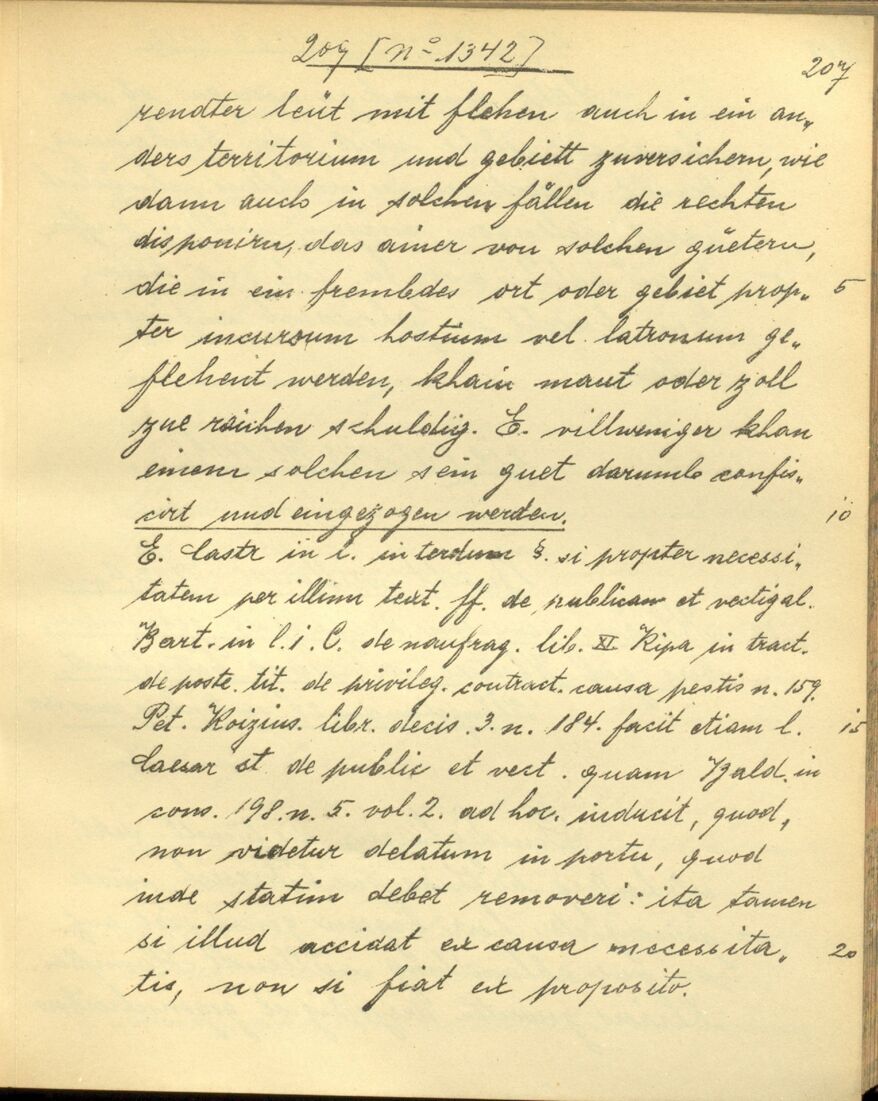 209 [nº 1342]
207
rendter leüt mit flehen auch in ein an„
ders territorium und gebiett zuversichern, wie
dann auch in solchen fällen die rechten
disponirn, das ainer von solchen güetern,
die in ein frembdes ort oder gebiet prop„ 5
ter incursum hostium vel latronum ge„
flehent werden, khain maut oder zoll
zue raichen schuldig. E. villweniger khan
einem solchen sein guet darumb confis„
cirt und eingezogen werden. 10
E. Castr in l. interdum §. si propter necessi„
tatem per illum text. ff. de publican et vectigal.
Bart. in l. i. C. de naufrag. lib. XI Ripa in tract.
de peste. tit. de privileg. contract. causa pestis n. 159.
Pet. Koizius. libr. decis. 3. n. 184. facit etiam l. 15
Caesar st de public et vect. quam Bald. in
cons. 198. n. 5. vol. 2. ad hoc. inducit, quod,
non videtur delatum in portu, quod
inde statim debet removeri: ita tamen
si illud accidat ex causa necessita„ 20
tis, non si fiat ex proposito.